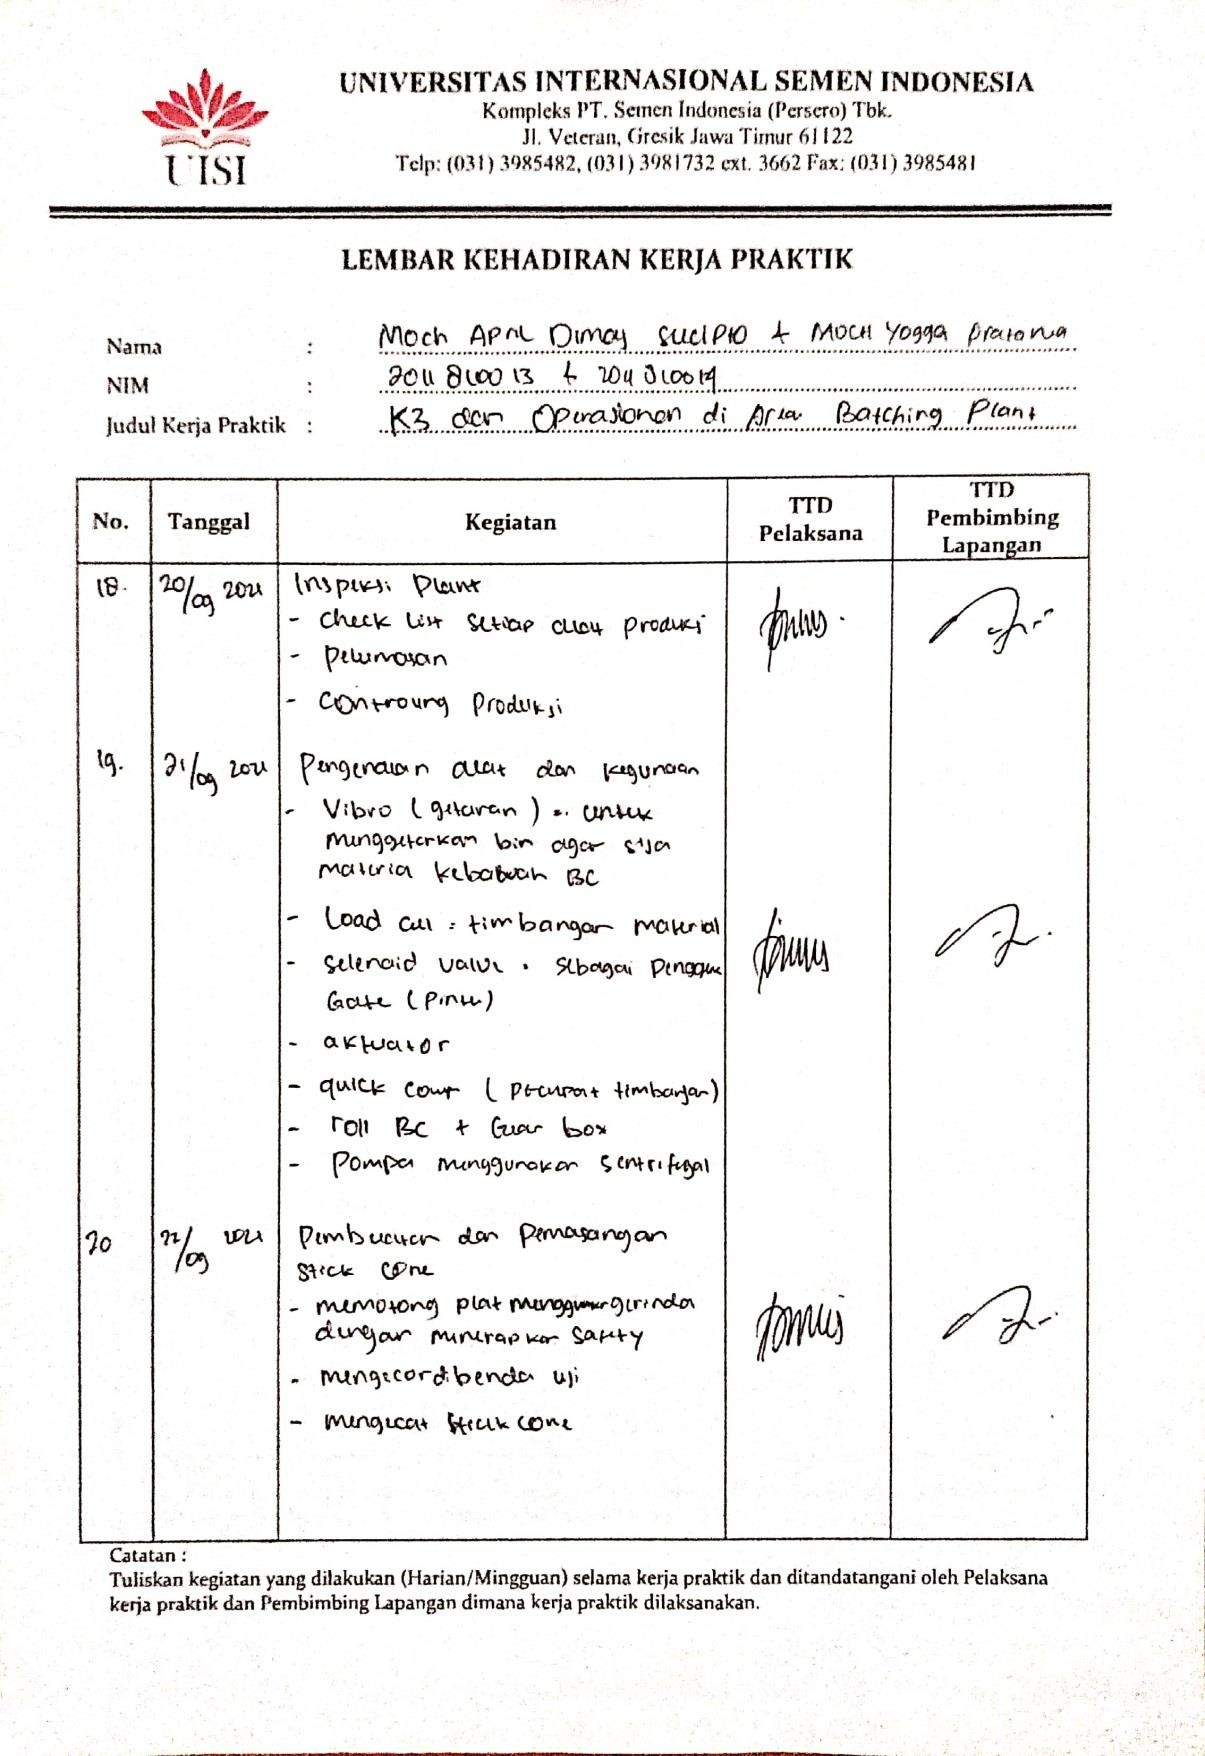 UNIVERSITAS INTERNASIONAL SEMEN INDONESIA
Kompleks PT. Semen Indonesia (Persero) Tbk.
Jl. Veteran, Gresik Jawa Timur 61122
Telp: (031) 3985482, (031) 3981732 ext. 3662 Fax: (031) 3985481
UISI
LEMBAR KEHADIRAN KERJA PRAKTIK
Nama : Moch April Dimas Sucipto & Moch Yogga Pratama
NIM : 2011810013 & 2011810014
Judul Kerja Praktik : K3 dan Operasional di Area Batching Plant
No. Tanggal Kegiatan TTD Pelaksana TTD Pembimbing Lapangan
18. 20/09 2021 Inspeksi Plant
- Check list setiap produksi
- pelumasan
- Controling Produksi
19. 21/09 2021 Pengenalan alat dan kegunaan
- Vibro (getaran) : untuk
menggetarkan bin agar sisa
material kebawah BC
- Load cell : timbangan material
- selenoid valve : sebagai
Gate (Pintu)
- aktuator
- quick (timbangan)
- roll BC + Gear box
- Pompa menggunakan sentrifugal
20 22/09 2021 Pembuatan dan Pemasangan
stick cone
- memotong plat menggunakan gerinda
dengan menerapkan safety
- mengecor benda uji
- mengecat stick cone
Catatan :
Tuliskan kegiatan yang dilakukan (Harian/Mingguan) selama kerja praktik dan ditandatangani oleh Pelaksana
kerja praktik dan Pembimbing Lapangan dimana kerja praktik dilaksanakan.